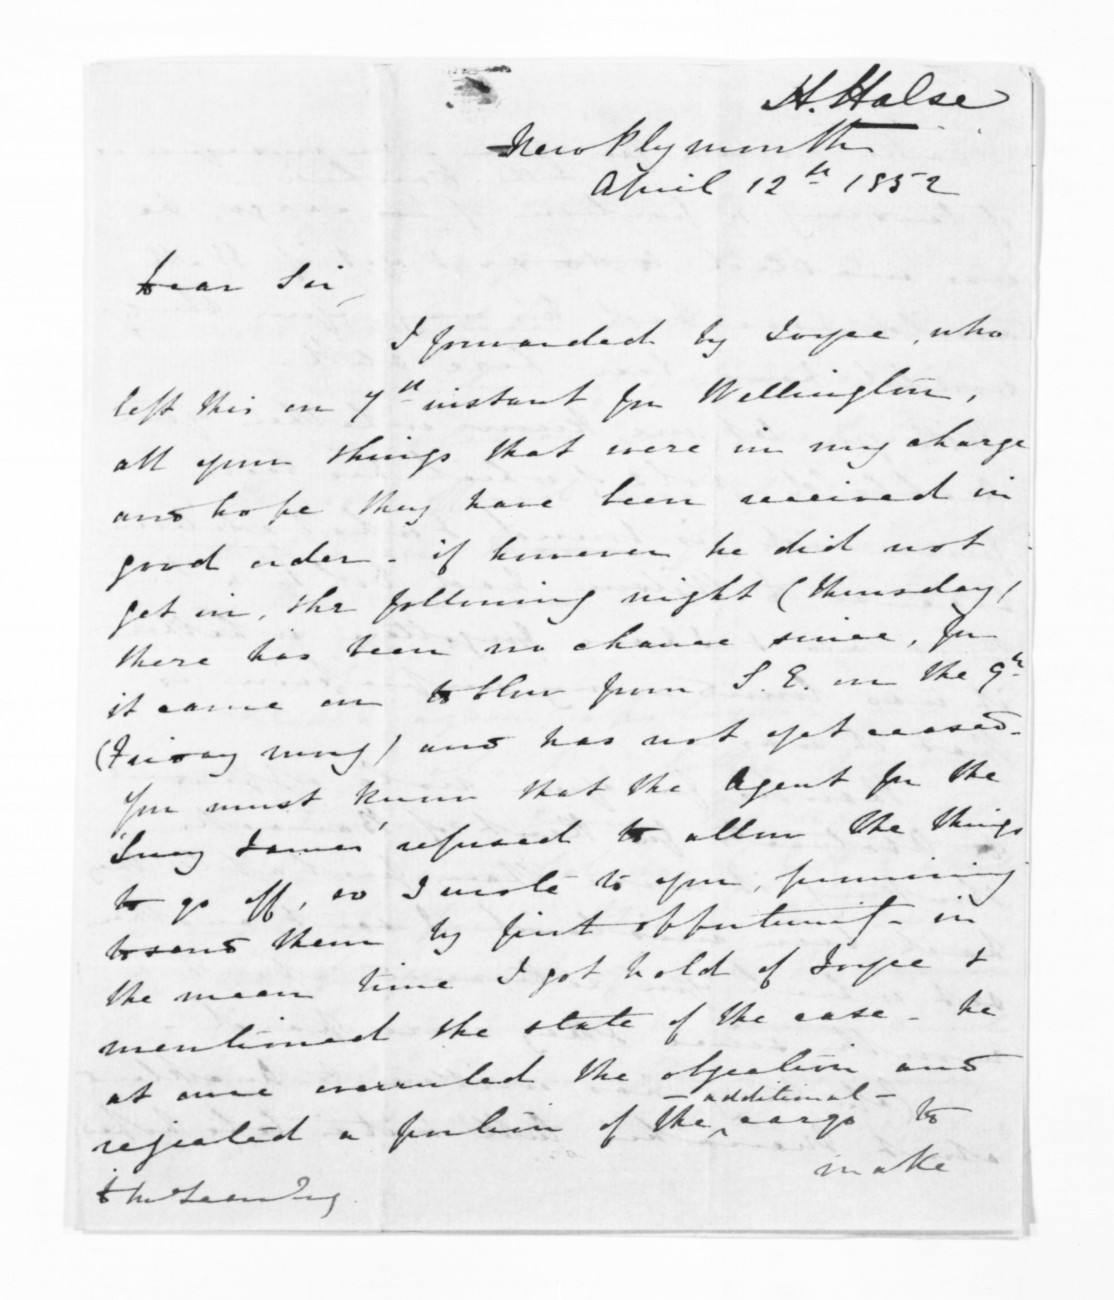 H. Halse
New Plymouth
April 12th 1852
Dear Sir,
I forwarded by Joyce, who
left this on 7th instant for Wellington,
all your things that were in my charge
and hope they have been received in
good order - if however he did not
get in, the following night (Thursday)
there has been no chance since, for
it came on to blow from S. E. on the 9th
(Friday morng) and has not yet ceased -
You must know that the Agent for the
"Lucy James" refused to allow the things
to go off, so I wrote to you, promising
to send them by first opportunity - in
the mean time I got hold of Joyce &
mentioned the state of the case - he
at once overruled the objection and
rejected a portion of the additional cargo to
make